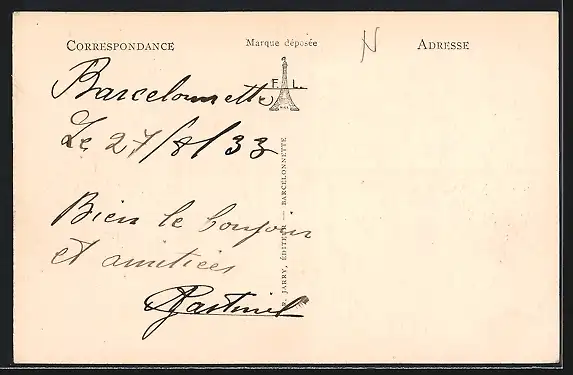 CORRESPONDANCE
Marque déposée
ADRESSE
F. L.
Barcelonnette
Le 27/8/33
Bien le bonjour
et amitiées
JARRY, ÉDITEUR — BARCELONNETTE